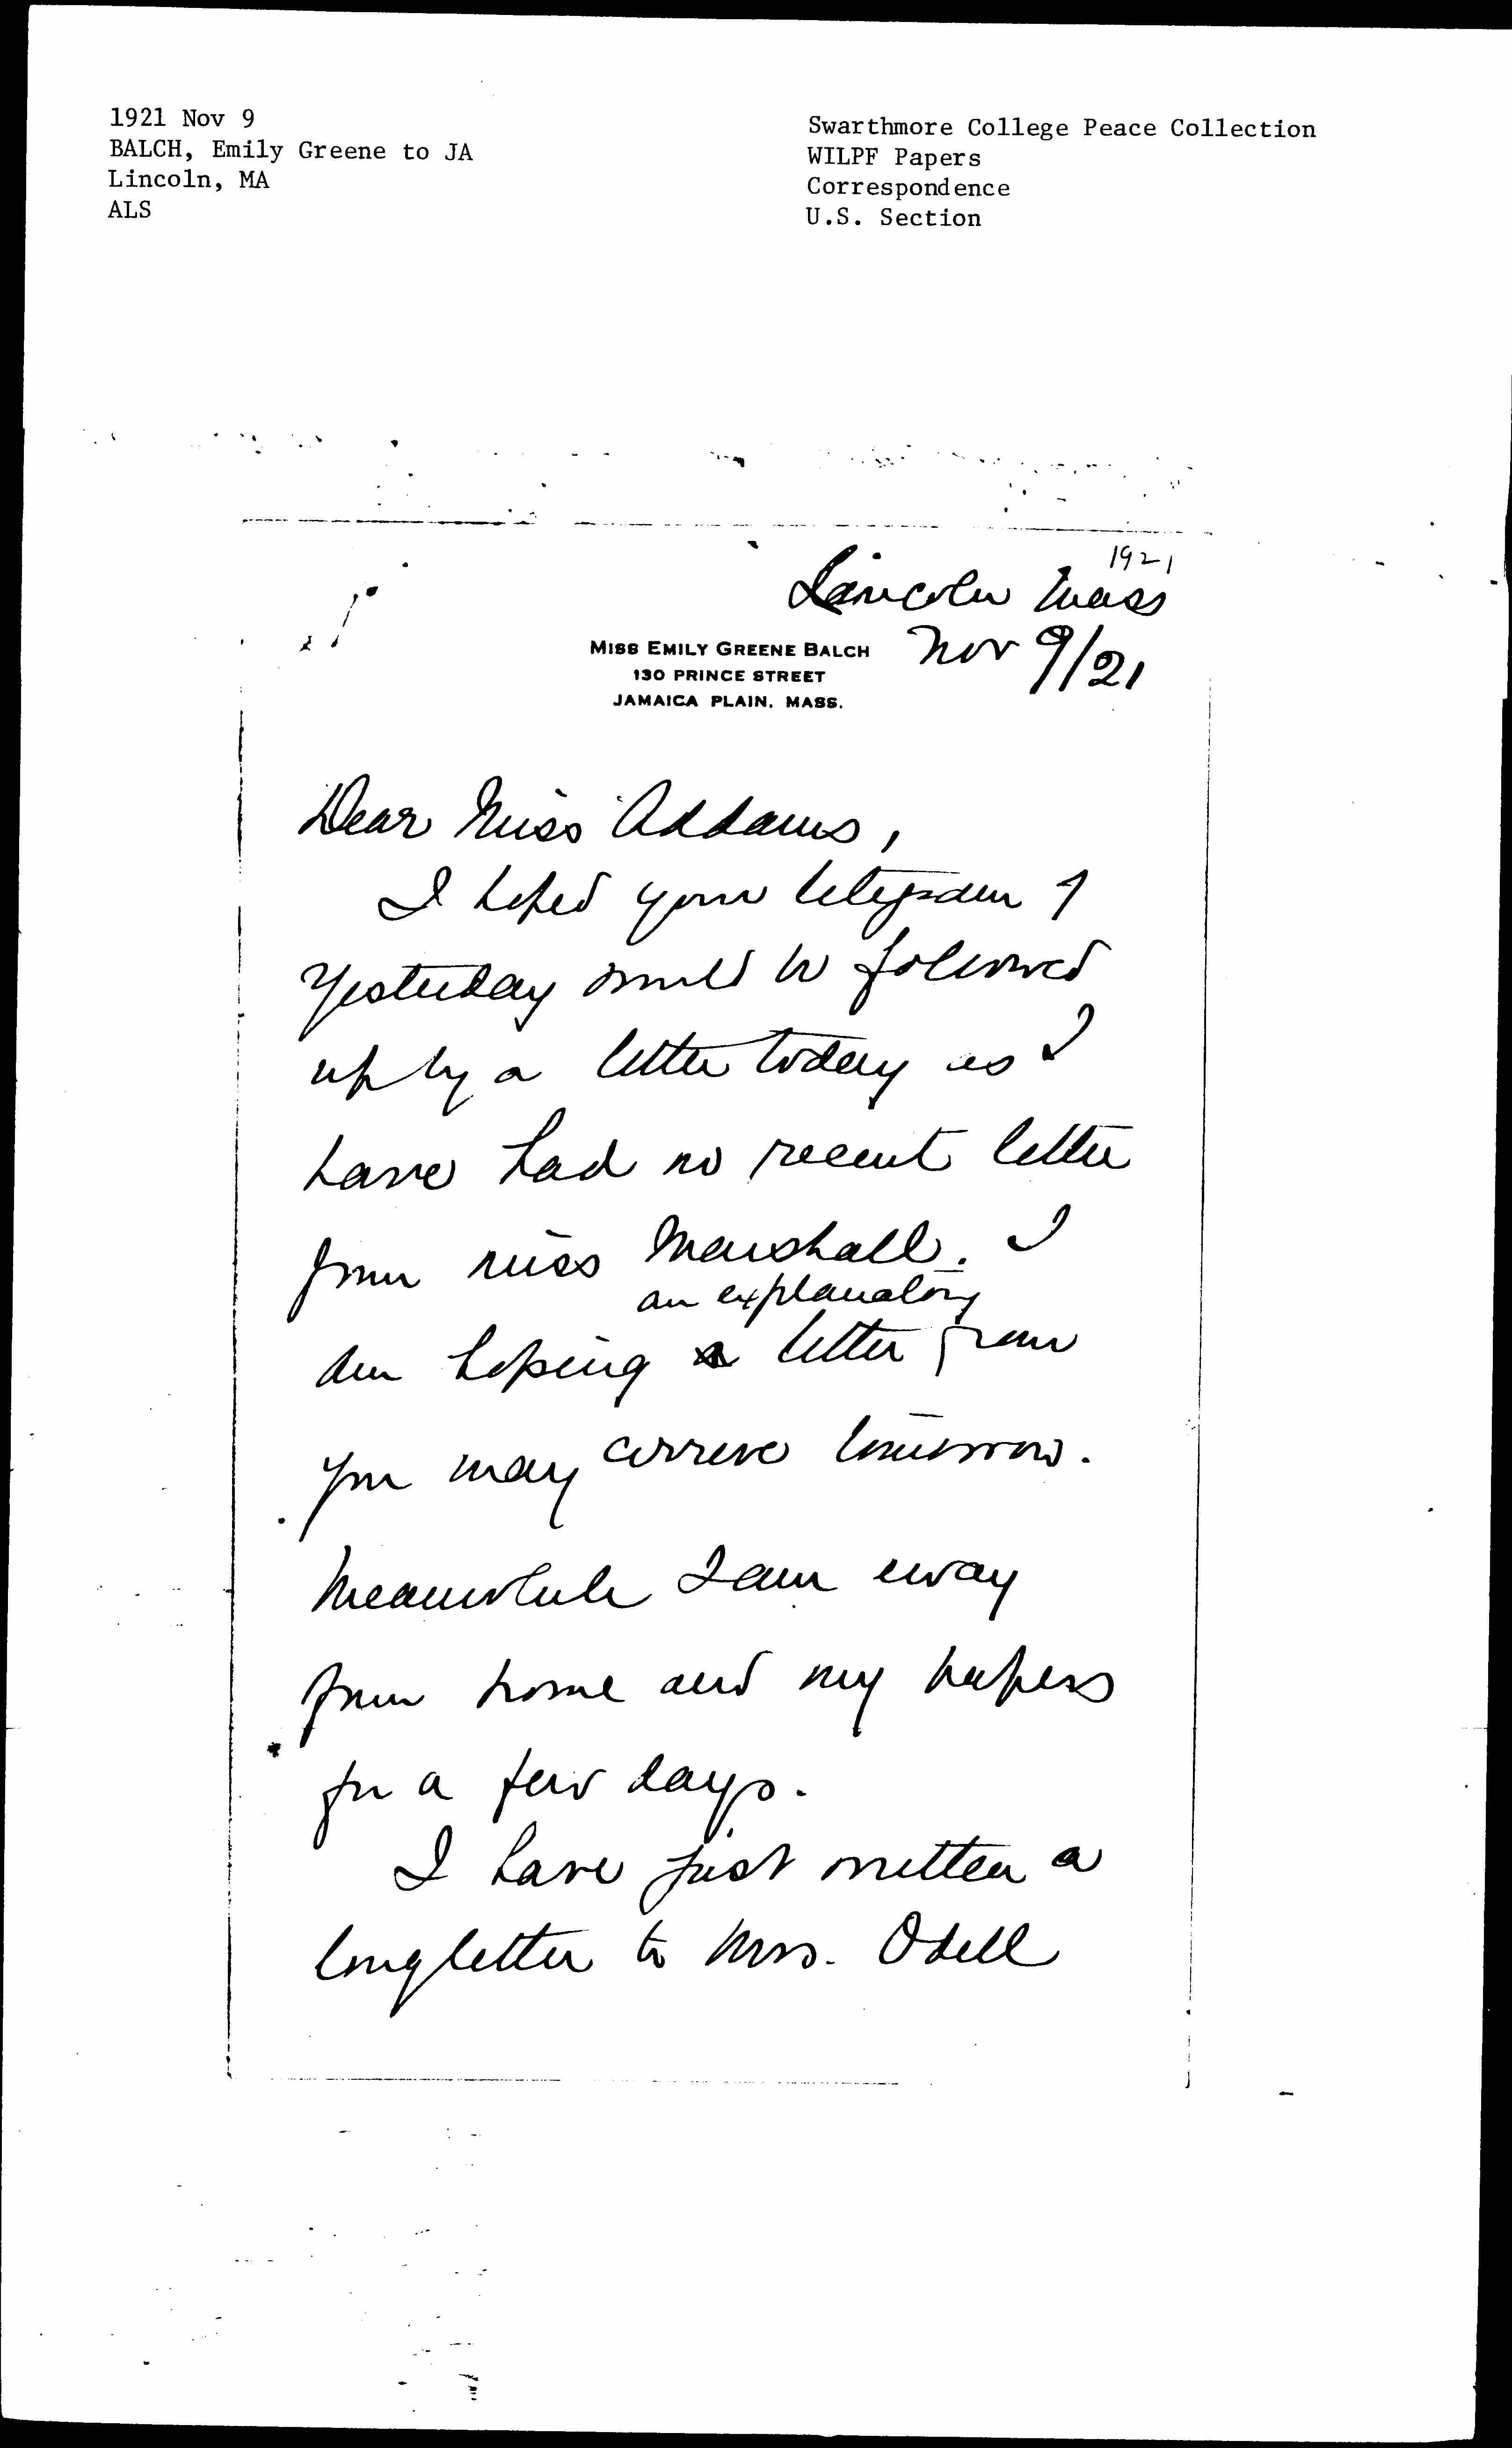 1921 Nov 9
BALCH, Emily Greene to JA
Lincoln, MA
ALS
Swarthmore College Peace Collection
WILPF Papers
Correspondence
U.S. Section
1921
Lincoln Mass
Nov 9/21
MISS EMILY GREENE BALCH
130 PRINCE STREET
JAMAICA PLAIN, MASS.
Dear Miss Addams,
I hoped your telegram of
yesterday would be followed
up by a letter today as I
have had no recent letter
from Miss Marshall. I
an explanatory
am hoping a letter from
you may arrive tomorrow.
Meanwhile I am away
from home and my papers
for a few days.
I have just written a
long letter to Mrs. Odell